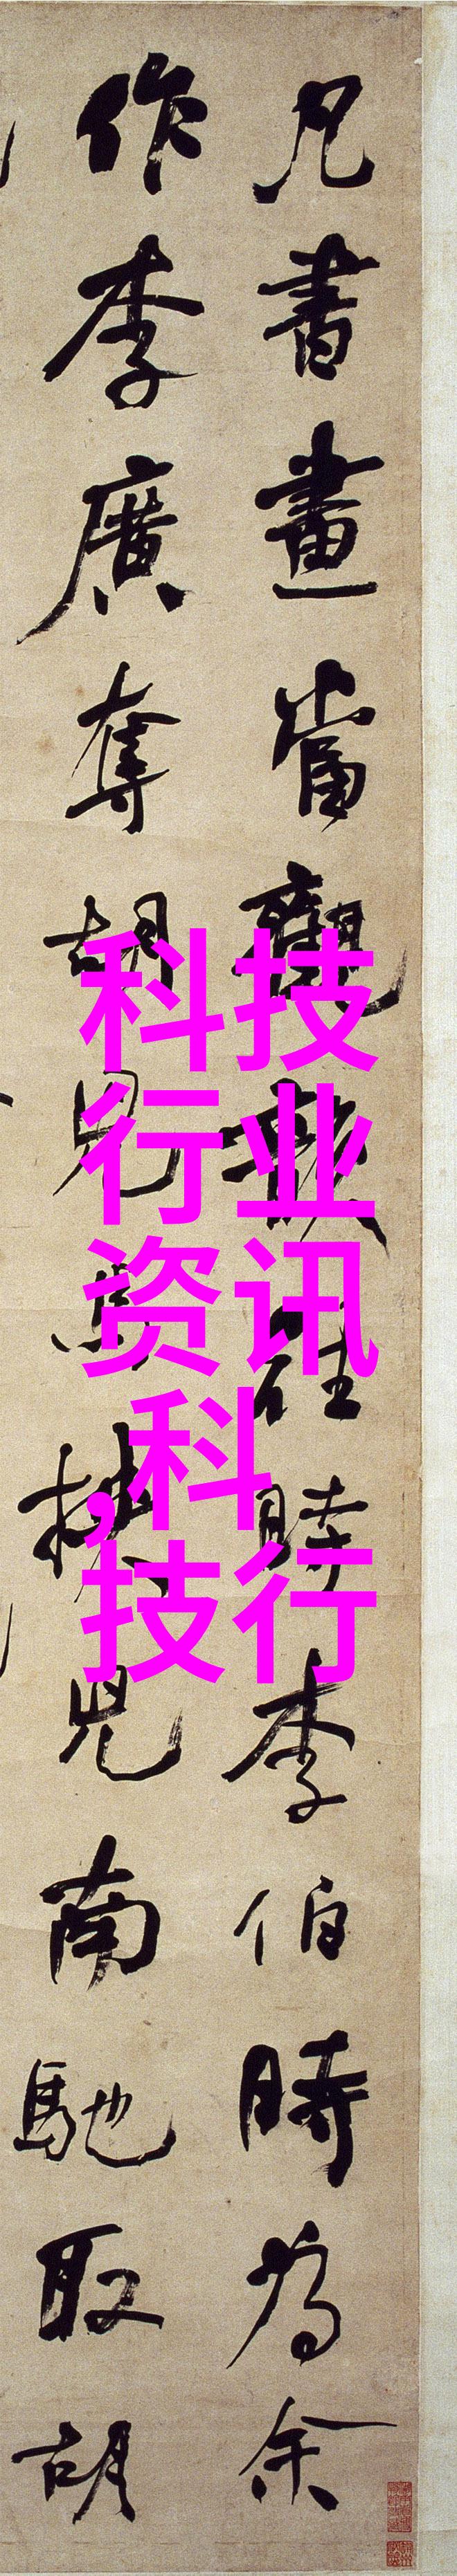 凡書畫當觀韻往時李伯時為余
作李廣奪胡兒馬挾兒南馳取胡
科技
行业
资讯
,科
技行